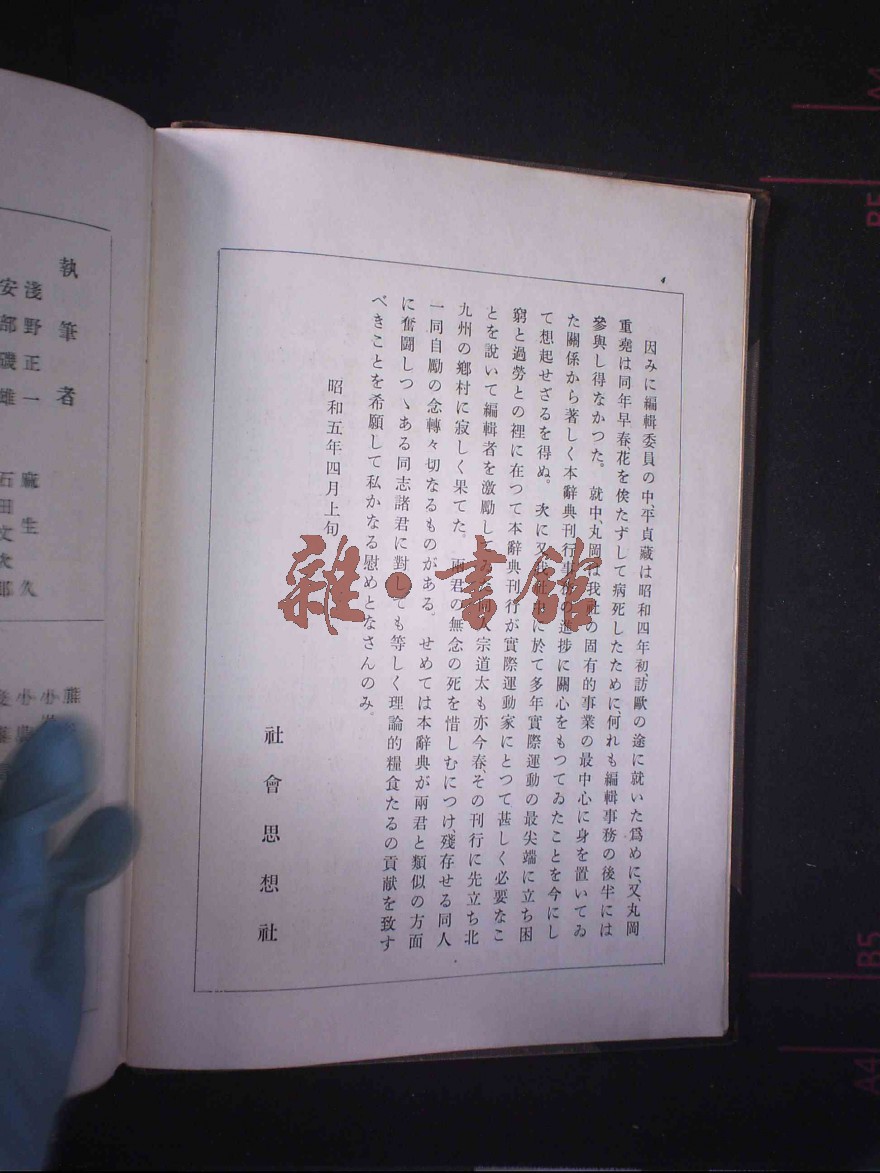 4
因みに編輯委員の中、平貞藏は昭和四年初、訪歐の途に就いた爲めに、又、丸岡
重堯は同年早春花を俟たずして病死したために、何れも編輯事務の後半には
參與し得なかつた。就中、丸岡は我社の固有的事業の最中心に身を置いてゐ
た關係から著しく本辭典刊行事務の進捗に關心をもつてゐたことを今にし
て想起せざるを得ぬ。次に又我社中に於て多年實際運動の最尖端に立ち困
窮と過勞との裡に在つて本辭典刊行が實際運動家にとつて甚しく必要なこ
とを說いて編輯者を激勵して同人宗道太も亦今春、その刊行に先立ち北
九州の鄕村に寂しく果てた。兩君の無念の死を惜しむにつけ、殘存せる同人
一同自勵の念轉々切なるものがある。せめては本辭典が兩君と類似の方面
に奮鬪しつゝある同志諸君に對しても等しく理論的糧食たるの貢献を致す
べきことを希願して私かなる慰めとなさんのみ。
昭和五年四月上旬
社會思想社
執筆者
淺野正一
安部磯雄
麻生久
石田文次郎
雜・書館